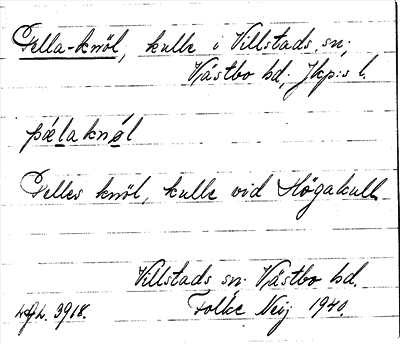 Pella-knöl, kulle i Villstads sn,
Västbo hd, Jkp:s l.
pælaknøl
Pelles knöl, kulle vid Högakull
Villstads sn. Västbo hd.
3918. Folke Neij 1940.